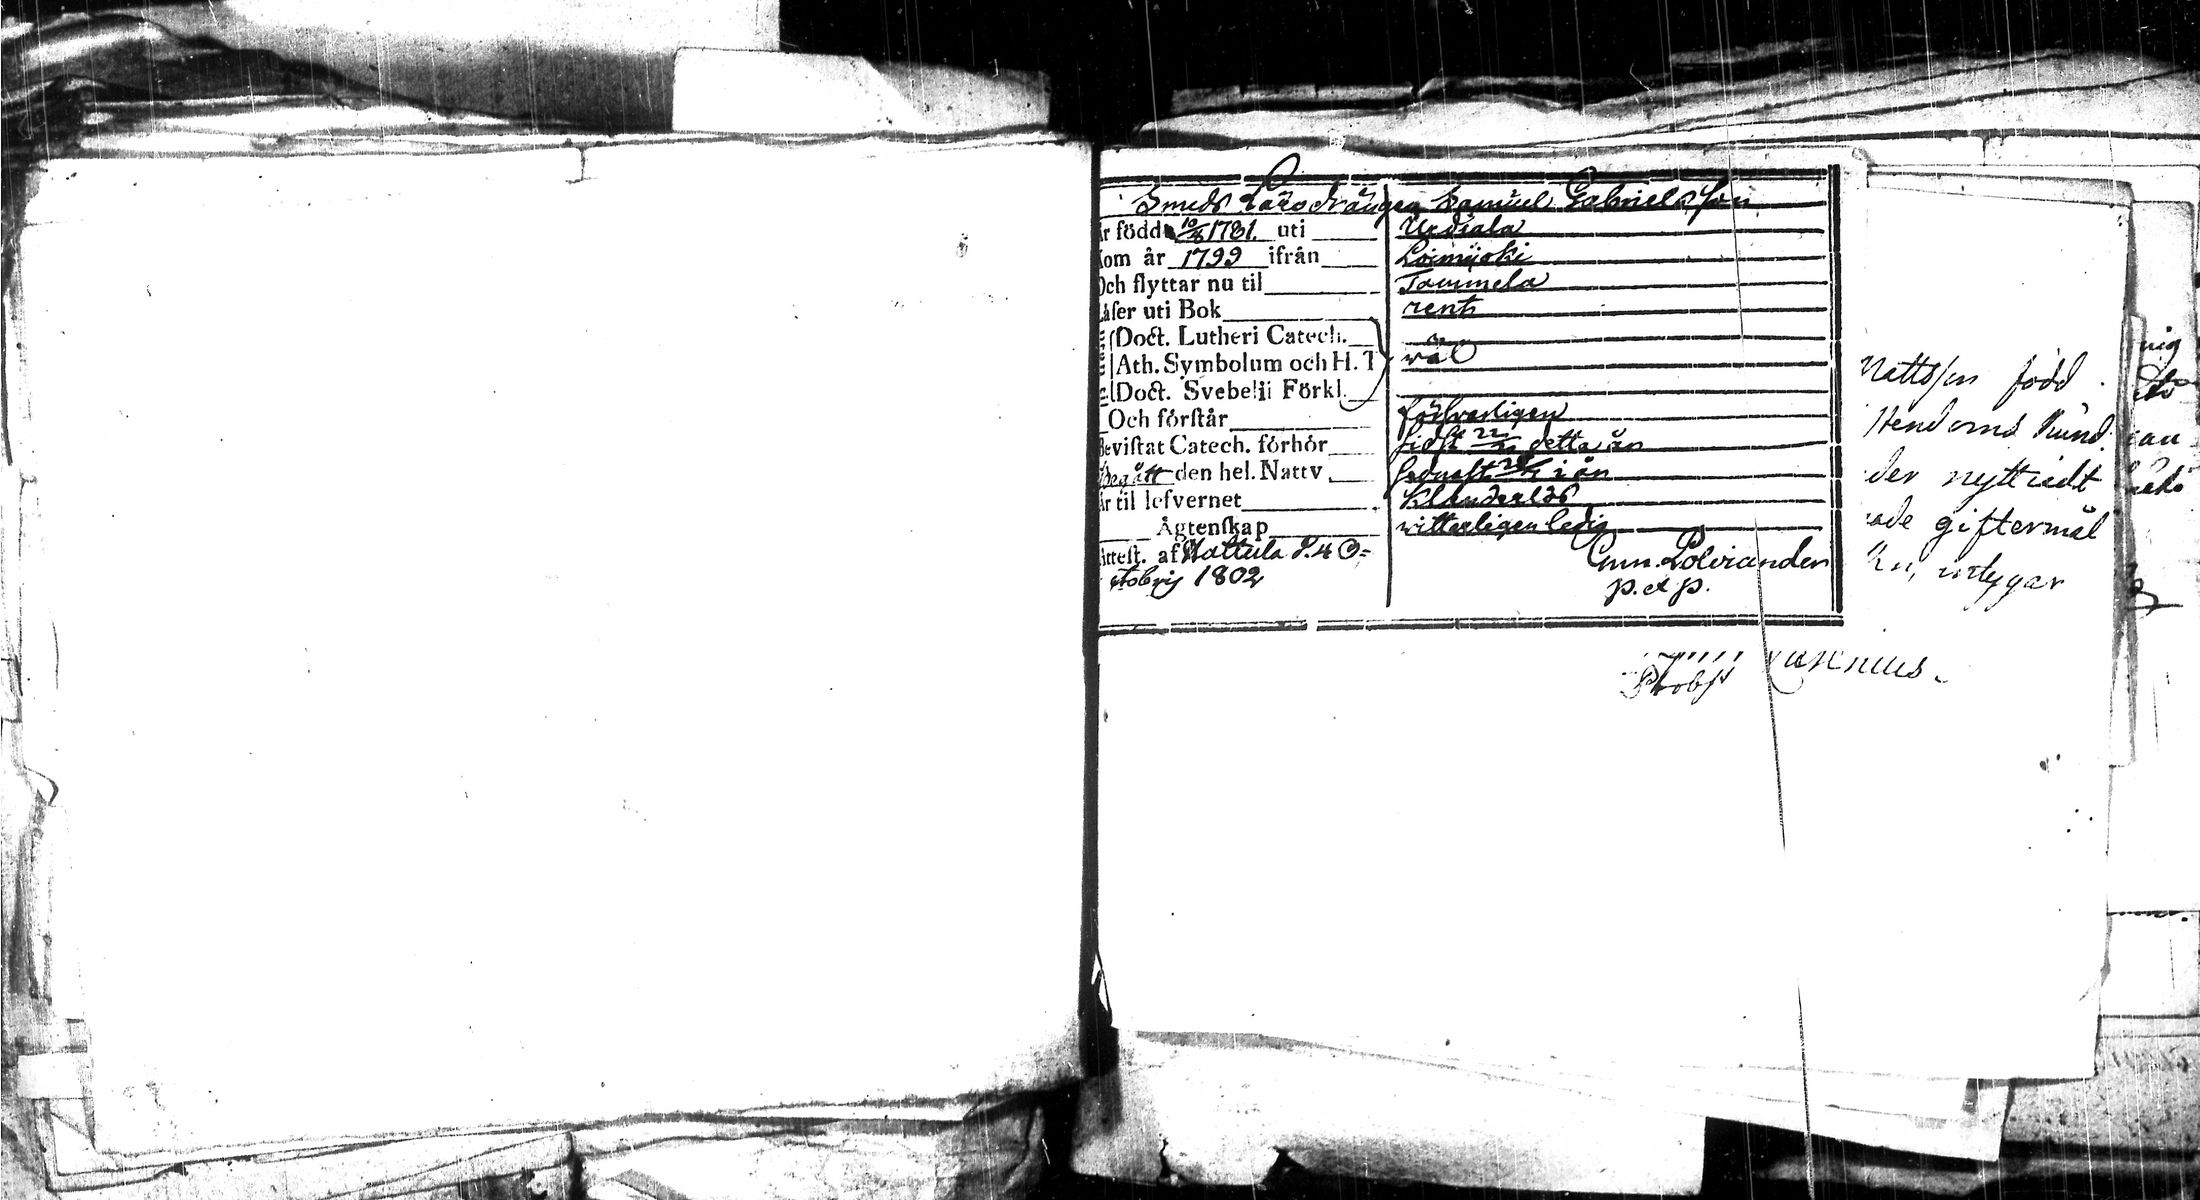 Smeds Läro drängen Samuel Gabrielsson
är född 10/8 1781. uti Urdiala
Kom år 1799 ifrån Loimijoki
Och flyttar nu til Tammela
Läser uti Bok rent
Doct. Lutheri Catech.
Ath. Symbolum och H. T wäl
Doct. Svebelii Förkl.
Och förstår försvarligen
Bevistat Catech. förhör sidst 22/ detta år
Begått den hel. Nattv. senast i år
är til lefvernet Klanderlös
Ägtenskap witterligen ledig
Attest. af Mattula d. 4 O=
ctobris 1802
Polviander
p. et p.
Mattsson född
nig
der nyttiadt
ade giftermål
intygar
Probst